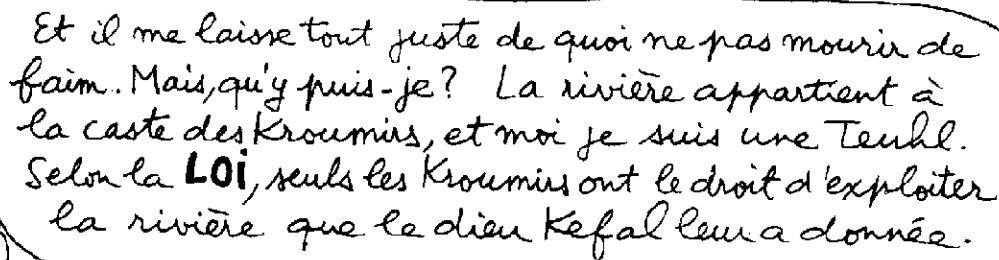 Et il me laisse tout juste de quoi ne pas mourir de
faim. Mais, qu'y puis-je? La rivière appartient à
la caste des Kroumirs, et moi je suis une Teuhl.
Selon la LOi, seuls les Kroumirs ont le droit d'exploiter
la rivière que le dieu Kefal leur a donnée.